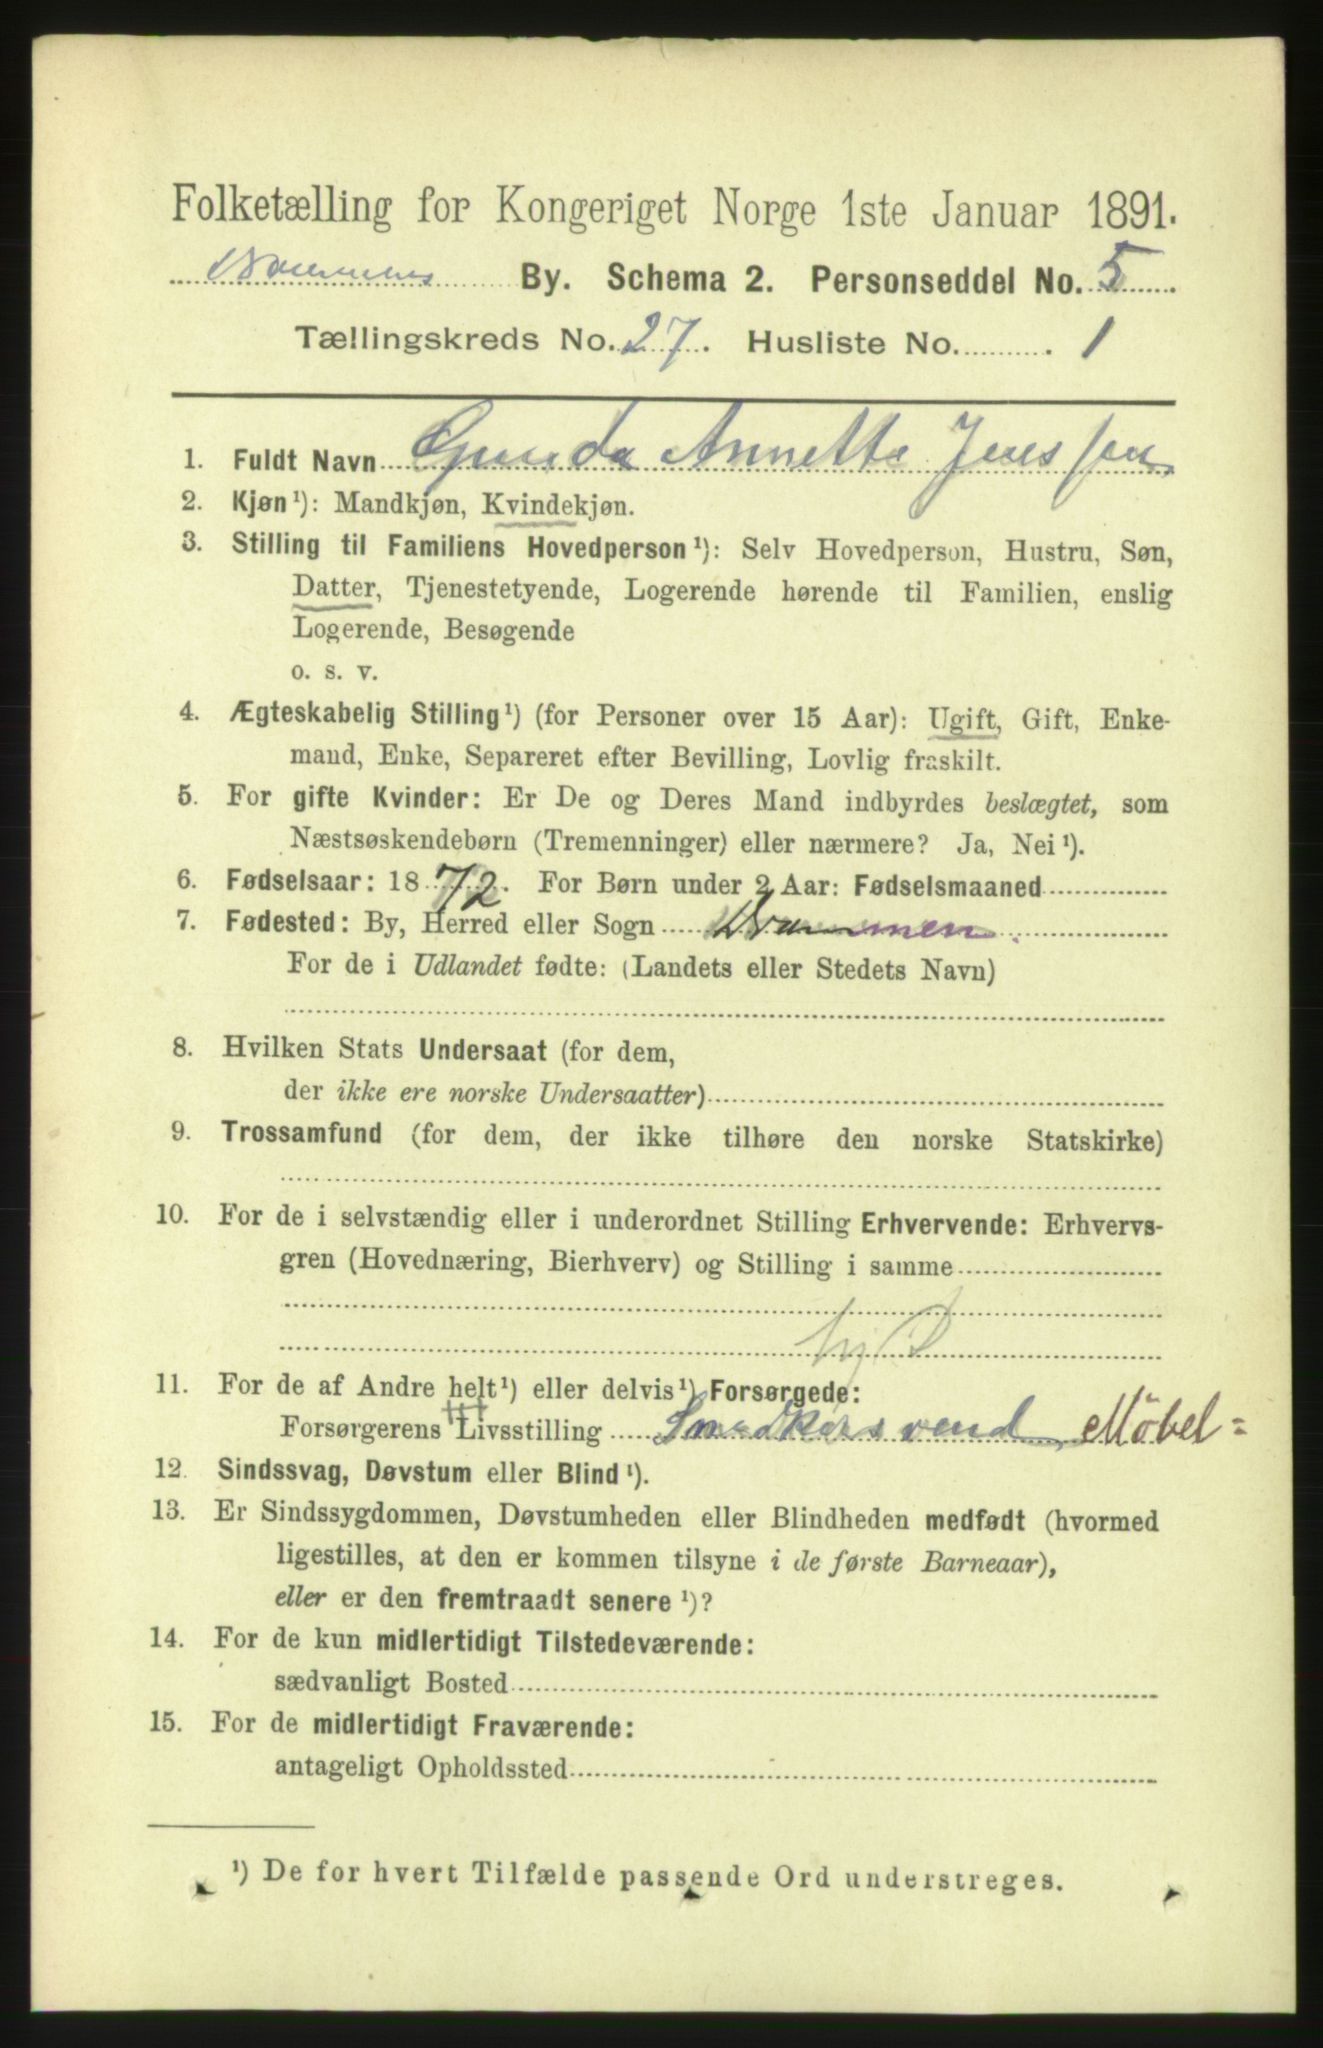 Folketælling for Kongeriget Norge 1ste Januar 1891.
Drammens By. Schema 2. Personseddel No. 5
Tællingskreds No. 27. Husliste No. 1
1. Fuldt Navn Gunda Annette Jenssen
2. Kjøn ¹): Mandkjøn, Kvindekjøn.
3. Stilling til Familiens Hovedperson ¹): Selv Hovedperson, Hustru, Søn,
Datter, Tjenestetyende, Logerende hørende til Familien, enslig
Logerende, Besøgende
o. s. v.
4. Ægteskabelig Stilling ¹) (for Personer over 15 Aar): Ugift, Gift, Enke-
mand, Enke, Separeret efter Bevilling, Lovlig fraskilt.
5. For gifte Kvinder: Er De og Deres Mand indbyrdes beslægtet, som
Næstsøskendebørn (Tremenninger) eller nærmere? Ja, Nei ¹).
6. Fødselsaar: 1872. For Børn under 2 Aar: Fødselsmaaned
7. Fødested: By, Herred eller Sogn Drammen.
For de i Udlandet fødte: (Landets eller Stedets Navn)
8. Hvilken Stats Undersaat (for dem,
der ikke ere norske Undersaatter)
9. Trossamfund (for dem, der ikke tilhøre den norske Statskirke)
10. For de i selvstændig eller i underordnet Stilling Erhvervende: Erhvervs-
gren (Hovednæring, Bierhverv) og Stilling i samme
11. For de af Andre helt ¹) eller delvis ¹) Forsørgede:
Forsørgerens Livsstilling Snedkersvend, Møbel=
12. Sindssvag, Døvstum eller Blind ¹).
13. Er Sindssygdommen, Døvstumheden eller Blindheden medfødt (hvormed
ligestilles, at den er kommen tilsyne i de første Barneaar),
eller er den fremtraadt senere ¹)?
14. For de kun midlertidigt Tilstedeværende:
sædvanligt Bosted
15. For de midlertidigt Fraværende:
antageligt Opholdssted
¹) De for hvert Tilfælde passende Ord understreges.